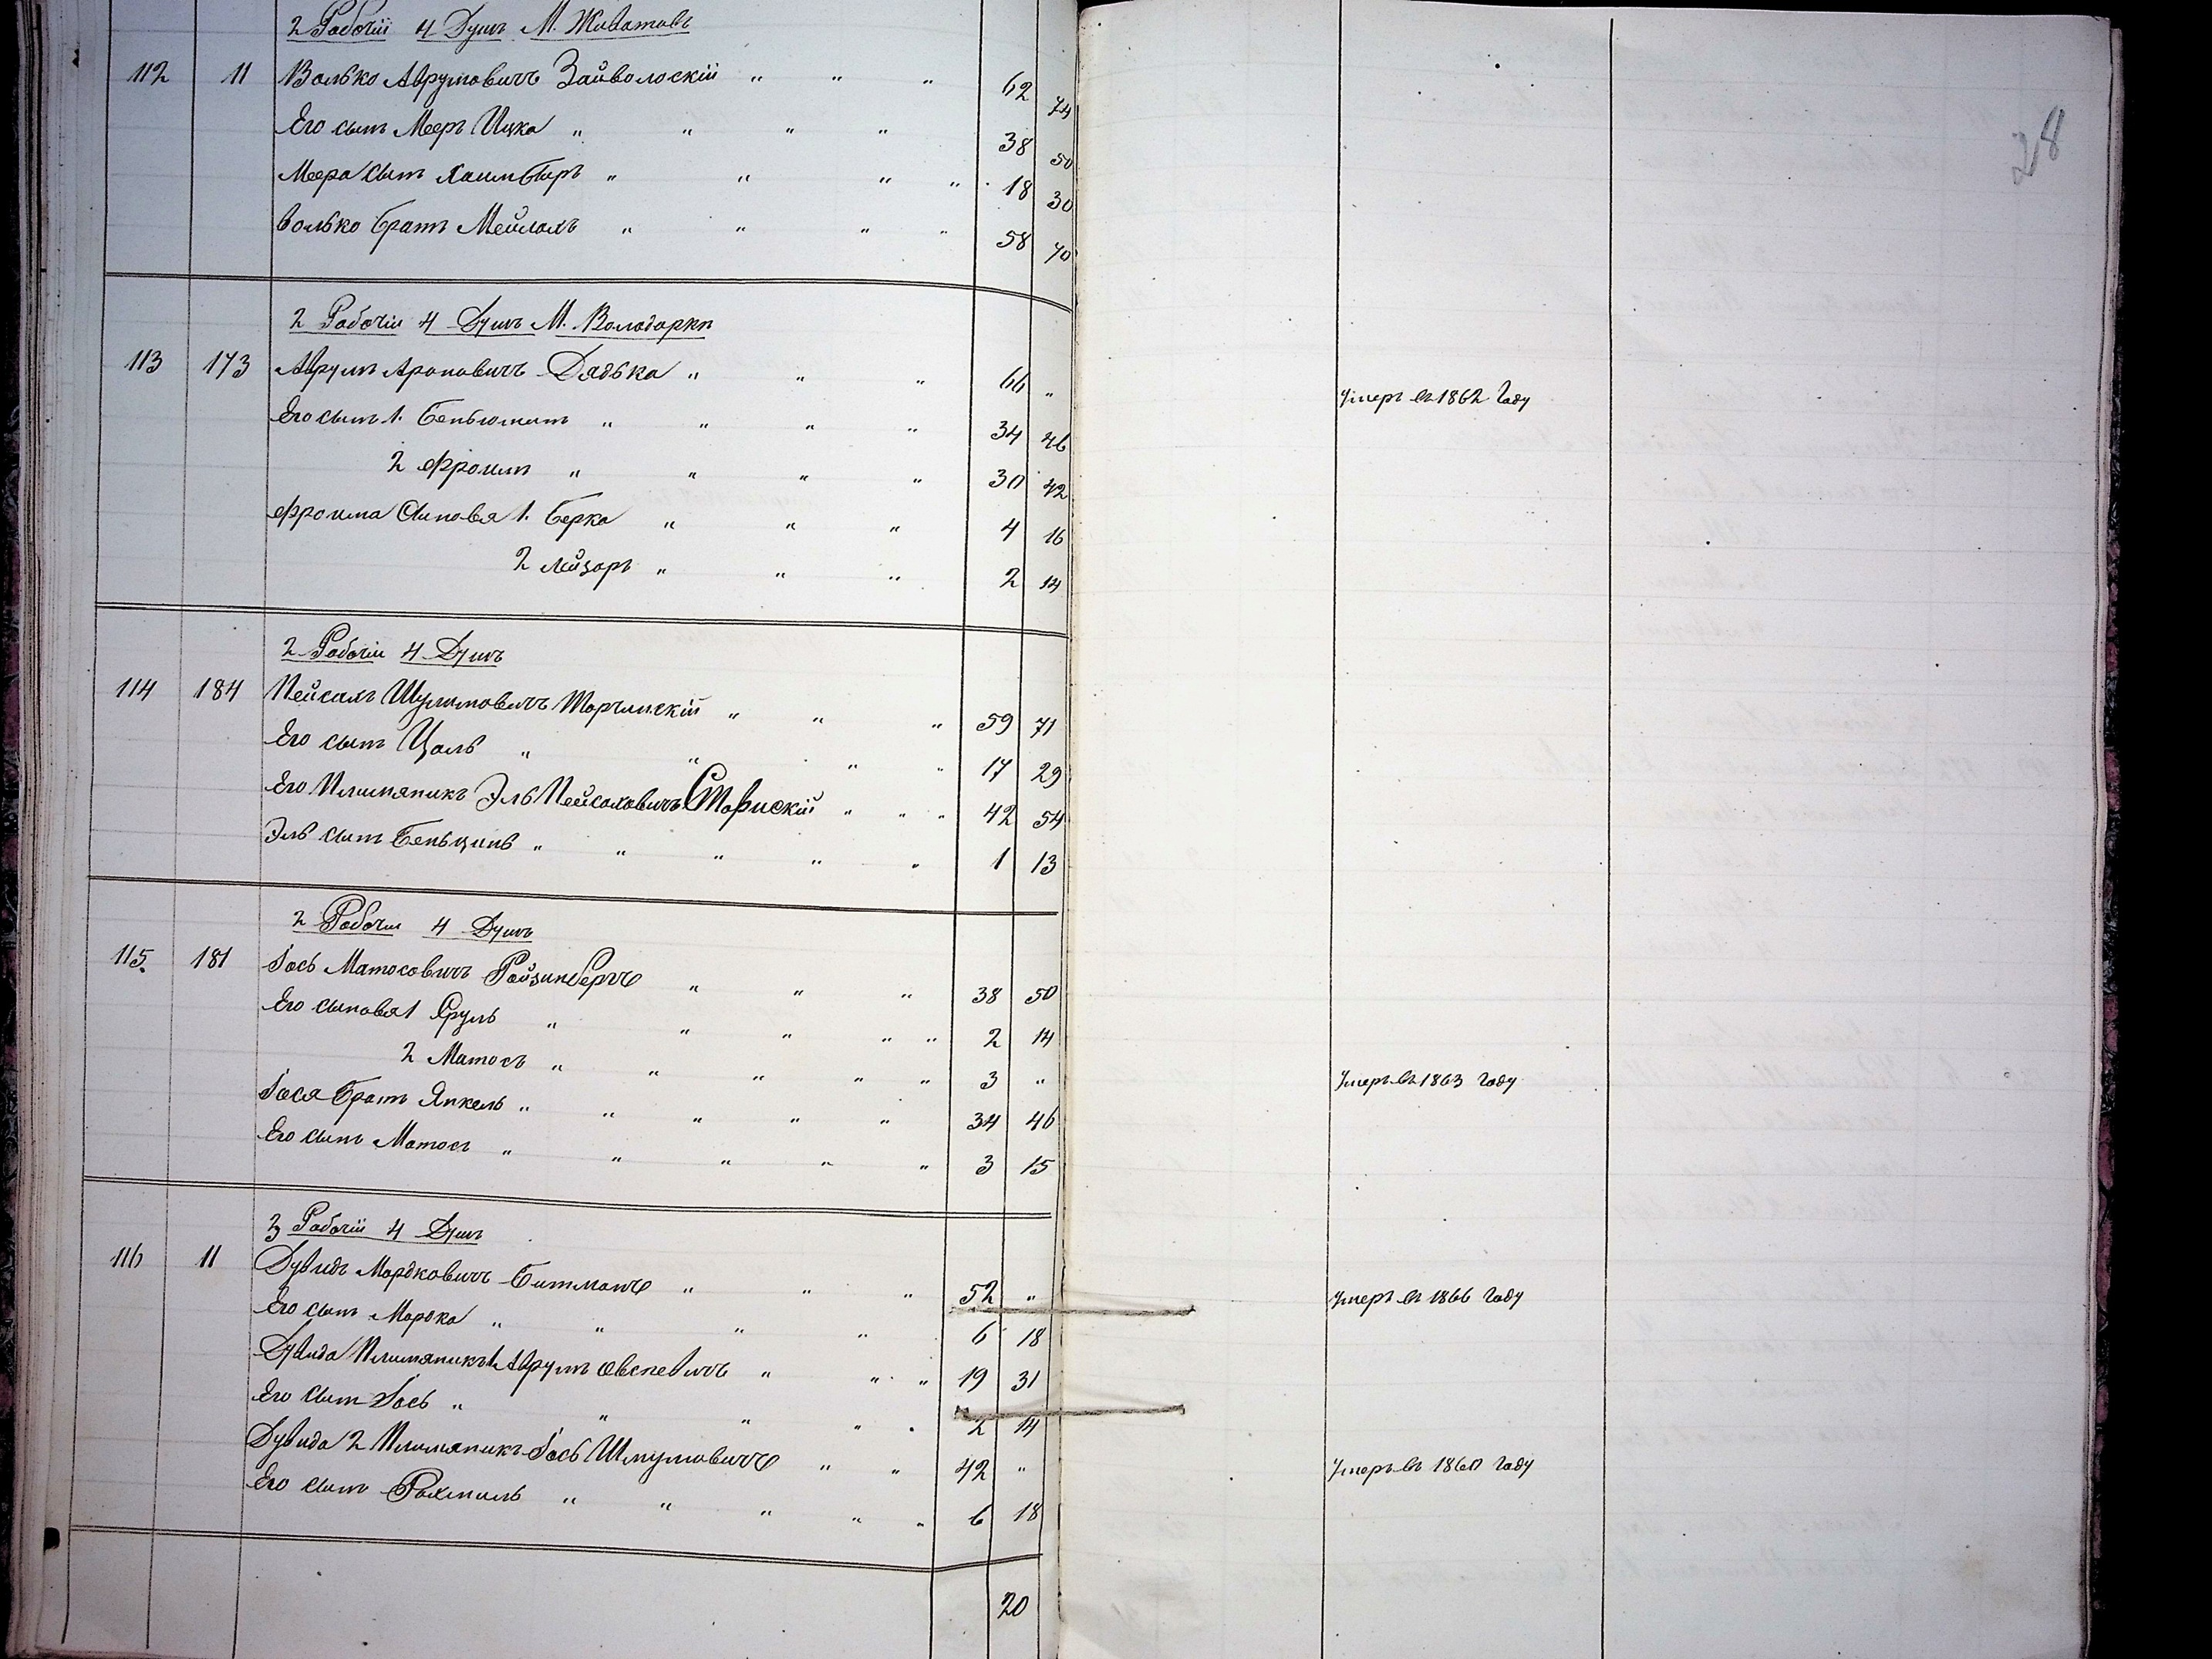 2 Рабочіи 4 Душъ М. Животовъ
112 11 Волько Аврумовичъ Зайволоскій " " " 62 74
Его сынъ Мееръ Ицка " " " " 38 50
Меера сынъ Хаимберъ " " " " 18 30
Волько братъ Мейлахъ " " " " 58 70
28
2 Рабочіи 4 Душъ М. Володарки
113 173 Аврумъ Ароновичъ Дядька " " " 66 " Умеръ въ 1862 Году
Его сынъ 1. Беньюминъ " " " " 34 46
2 Фроимъ " " " " 30 42
Фроима Сыновья 1. Берко " " " 4 16
2 Лейзоръ " " " 2 14
2 Рабочіи 4 Душъ
114 184 Пейсахъ Шулимовичъ " " " 59 71
Его сынъ Цаль " " " " 17 29
Его Племяникъ Эль Пейсаховичъ " " " 42 54
Эль сынъ Беньцинъ " " " " " 1 13
2 Рабочіи 4 Душъ
115. 181 Іось Матосовичъ Ройзинбергъ " " " 38 50
Его сыновья 1 Сруль " " " " " 2 14
2 Матосъ " " " " " 3 " Умеръ въ 1863 Году
Іося братъ Янкель " " " " " 34 46
Его сынъ Матосъ " " " " " 3 15
3 Рабочіи 4 Душъ
116 11 Дувидъ Мордковичъ Битманъ " " " 52 " Умеръ въ 1866 Году
Его сынъ Мордко " " " " 6 18
Дувида Племяникъ 1 Аврумъ Овсіевичъ " " " 19 31
Его сынъ Іось " " " " " 2 14
Дувида 2 Племяникъ Іось Шмулювичъ " " 42 " Умеръ въ 1860 Году
Его сынъ Рахмиль " " " " " 6 18
20